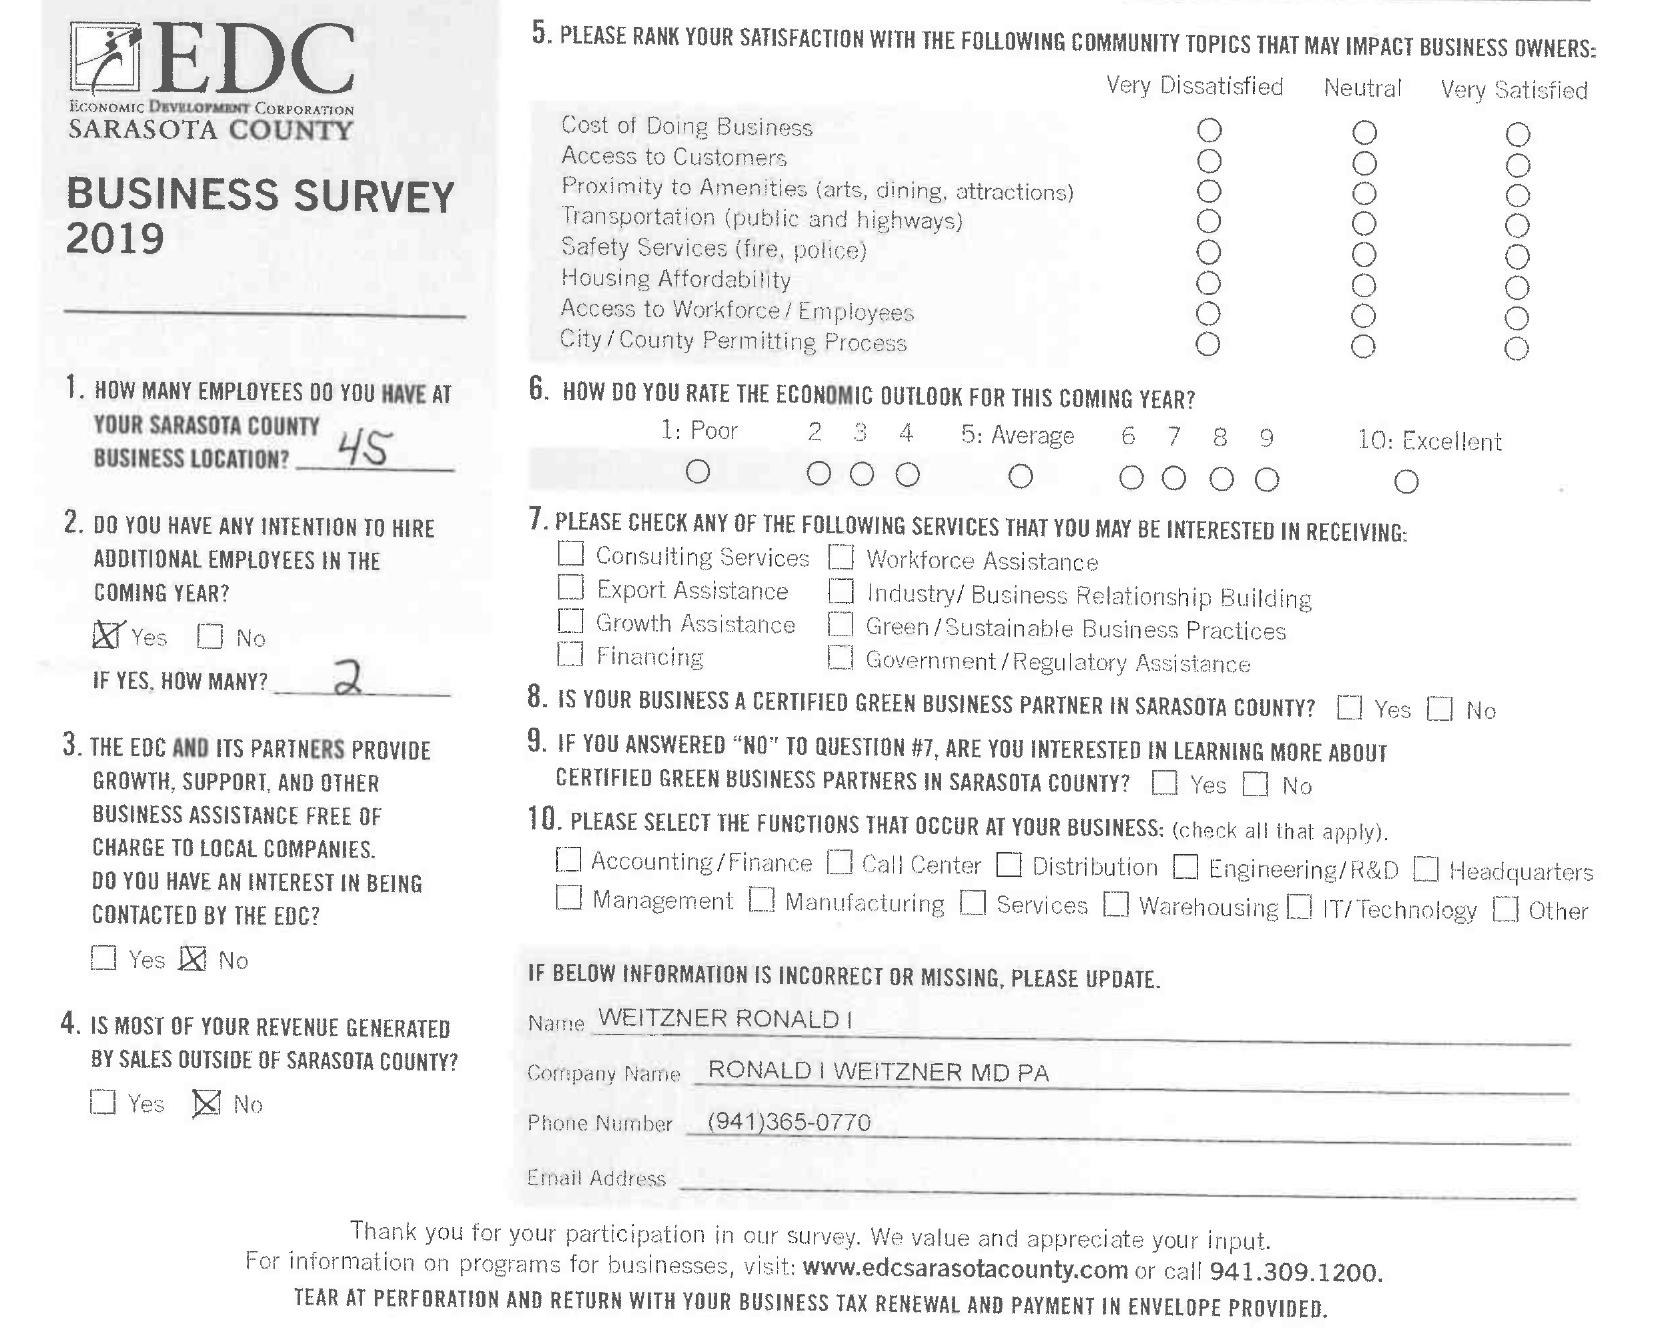 EDC
ECONOMIC DEVELOPMENT CORPORATION
SARASOTA COUNTY
BUSINESS SURVEY
2019
1. HOW MANY EMPLOYEES DO YOU HAVE AT
YOUR SARASOTA COUNTY
BUSINESS LOCATION? 45
2. DO YOU HAVE ANY INTENTION TO HIRE
ADDITIONAL EMPLOYEES IN THE
COMING YEAR?
Yes No
IF YES, HOW MANY? 2
3. THE EDC AND ITS PARTNERS PROVIDE
GROWTH, SUPPORT, AND OTHER
BUSINESS ASSISTANCE FREE OF
CHARGE TO LOCAL COMPANIES.
DO YOU HAVE AN INTEREST IN BEING
CONTACTED BY THE EDC?
Yes No
4. IS MOST OF YOUR REVENUE GENERATED
BY SALES OUTSIDE OF SARASOTA COUNTY?
Yes No
5. PLEASE RANK YOUR SATISFACTION WITH THE FOLLOWING COMMUNITY TOPICS THAT MAY IMPACT BUSINESS OWNERS:
Very Dissatisfied Neutral Very Satisfied
Cost of Doing Business
Access to Customers
Proximity to Amenities (arts, dining, attractions)
Transportation (public and highways)
Safety Services (fire, police)
Housing Affordability
Access to Workforce/ Employees
City/County Permitting Process
6. HOW DO YOU RATE THE ECONOMIC OUTLOOK FOR THIS COMING YEAR?
1: Poor 2 3 4 5: Average 6 7 8 9 10: Excellent
7. PLEASE CHECK ANY OF THE FOLLOWING SERVICES THAT YOU MAY BE INTERESTED IN RECEIVING:
Consulting Services Workforce Assistance
Export Assistance Industry/ Business Relationship Building
Growth Assistance Green/Sustainable Business Practices
Financing Government/Regulatory Assistance
8. IS YOUR BUSINESS A CERTIFIED GREEN BUSINESS PARTNER IN SARASOTA COUNTY? Yes No
9. IF YOU ANSWERED “NO” TO QUESTION #7, ARE YOU INTERESTED IN LEARNING MORE ABOUT
CERTIFIED GREEN BUSINESS PARTNERS IN SARASOTA COUNTY? Yes No
10. PLEASE SELECT THE FUNCTIONS THAT OCCUR AT YOUR BUSINESS: (check all that apply).
Accounting/Finance Call Center Distribution Engineering/R&D Headquarters
Management Manufacturing Services Warehousing IT/Technology Other
IF BELOW INFORMATION IS INCORRECT OR MISSING, PLEASE UPDATE.
Name WEITZNER RONALD I
Company Name RONALD I WEITZNER MD PA
Phone Number (941)365-0770
Email Address
Thank you for your participation in our survey. We value and appreciate your input.
For information on programs for businesses, visit: www.edcsarasotacounty.com or call 941.309.1200.
TEAR AT PERFORATION AND RETURN WITH YOUR BUSINESS TAX RENEWAL AND PAYMENT IN ENVELOPE PROVIDED.